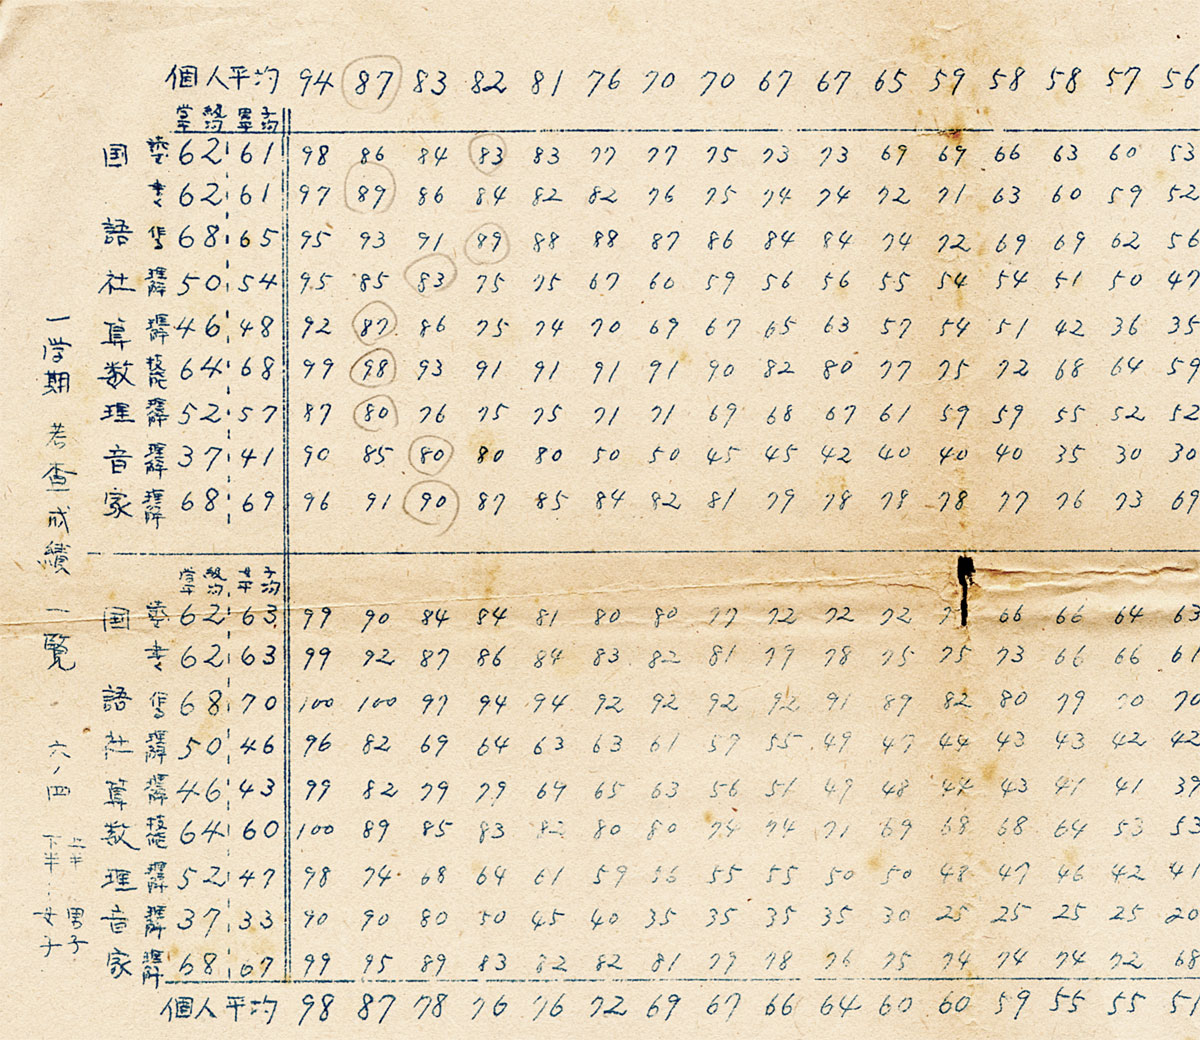 個人平均 94 87 83 82 81 76 70 70 67 67 65 59 58 58 57 56
学級平均 男子平均
国 読む 62 61 98 86 84 83 83 77 77 75 73 73 69 69 66 63 60 53
書く 62 61 97 89 86 84 82 82 76 75 74 74 72 71 63 60 59 52
語 作る 68 65 95 93 91 89 88 88 87 86 84 84 74 72 69 69 62 56
社 理解 50 54 95 85 83 75 75 67 60 59 56 56 55 54 54 51 50 47
算 理解 46 48 92 87 86 75 74 70 69 67 65 63 57 54 51 42 36 35
数 技能 64 68 99 98 93 91 91 91 91 90 82 80 77 75 72 68 64 59
理 理解 52 57 87 80 76 75 75 71 71 69 68 67 61 59 59 55 52 52
音 理解 37 41 90 85 80 80 80 50 50 45 45 42 40 40 40 35 30 30
家 理解 68 69 96 91 90 87 85 84 82 81 79 78 78 78 77 76 73 69
学級平均 女子平均
国 読む 62 63 99 90 84 84 81 80 80 77 72 72 72 66 66 64 63
書く 62 63 99 92 87 86 84 83 82 81 79 78 75 75 73 66 66 61
語 作る 68 70 100 100 97 94 94 92 92 92 92 91 89 82 80 79 70 70
社 理解 50 46 96 82 69 64 63 63 61 57 55 49 47 44 43 43 42 42
算 理解 46 43 99 82 79 79 69 65 63 56 51 49 48 44 43 41 41 39
数 技能 64 60 100 89 85 83 82 80 80 74 74 71 69 68 68 64 53 53
理 理解 52 47 98 74 68 64 61 59 56 55 55 50 50 48 47 46 42 41
音 理解 37 33 90 90 80 50 45 40 35 35 35 35 30 25 25 25 25 20
家 理解 68 67 99 95 89 83 82 82 81 79 78 76 75 74 74 74 72 68
個人平均 98 87 78 76 76 72 69 67 66 64 60 60 59 55 55 51
一学期 考査成績一覧 六ノ四
上半…男子
下半…女子